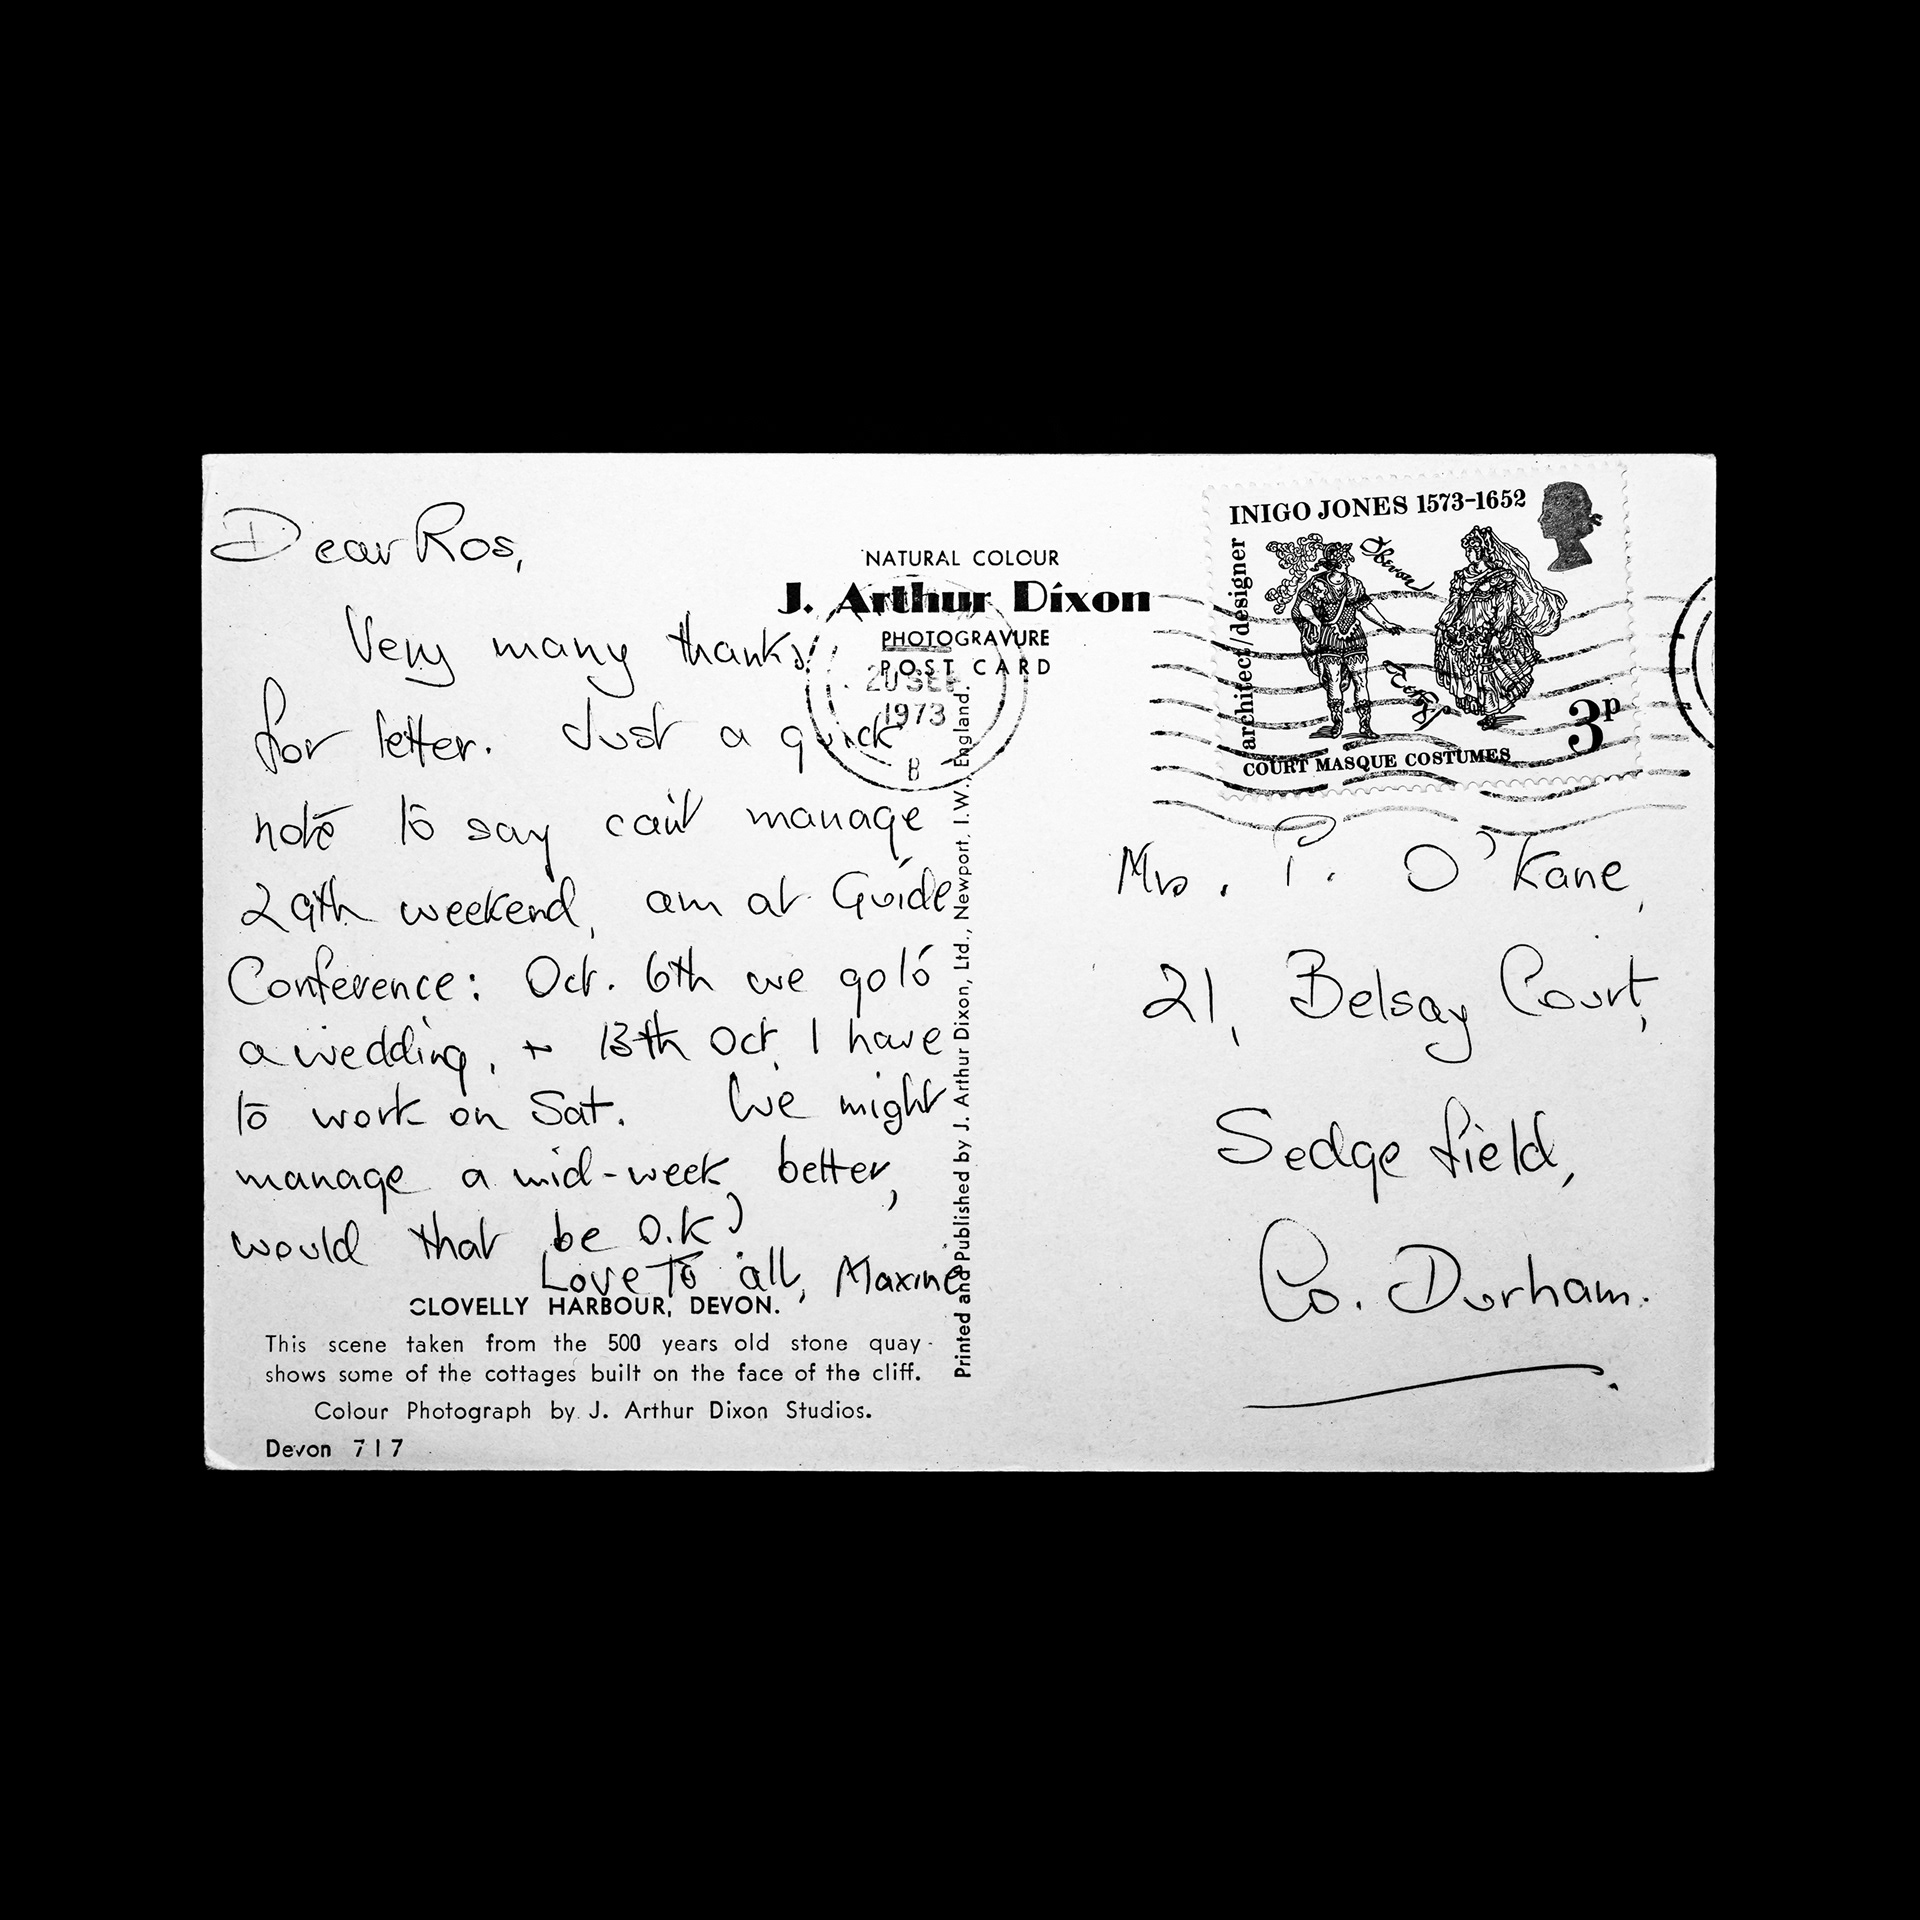 Dear Ros,
Very many thanks
for letter. Just a quick
note to say can't manage
29th weekend, am at Guide
Conference: Oct. 6th we go to
a wedding, + 13th Oct. I have
to work on Sat. We might
manage a mid-week, better,
would that be O.K?
Love to all, Maxine
CLOVELLY HARBOUR, DEVON.
This scene taken from the 500 years old stone quay
shows some of the cottages built on the face of the cliff.
Colour Photograph by J. Arthur Dixon Studios.
Devon 717
NATURAL COLOUR
J. Arthur Dixon
PHOTOGRAVURE
POST CARD
20 SEP
1973
B
Printed and Published by J. Arthur Dixon, Ltd., Newport, I.W. England.
INIGO JONES 1573-1652
architect/designer
Oberon
COURT MASQUE COSTUMES
3p
Mrs. P. O'Kane,
21, Belsay Court,
Sedgefield,
Co. Durham.